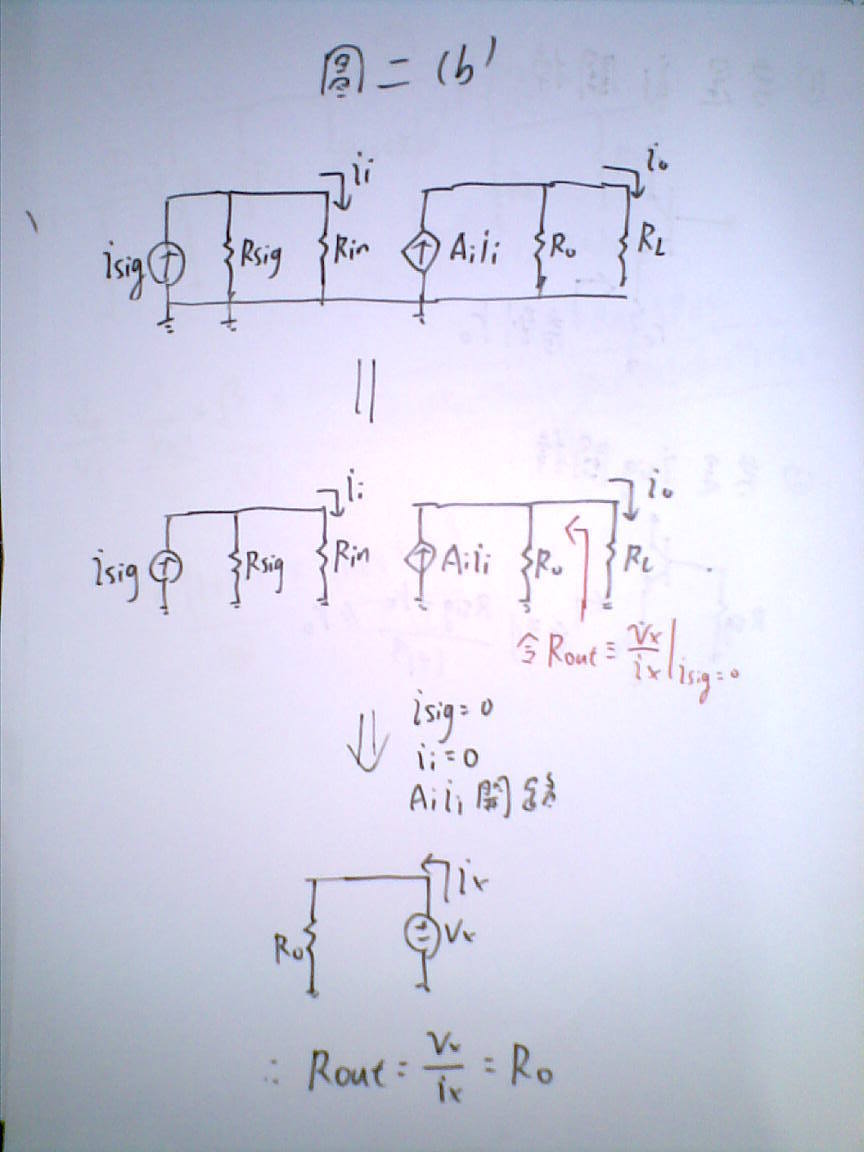 圖二(b)
ii
io
isig
Rsig
Rin
Aiii
Ro
RL
||
ii
io
isig
Rsig
Rin
Aiii
Ro
RL
令 Rout ≡ vx/ix | isig=0
isig=0
ii=0
Aiii 開路
ix
Ro
Vx
∴ Rout = Vx/ix = Ro